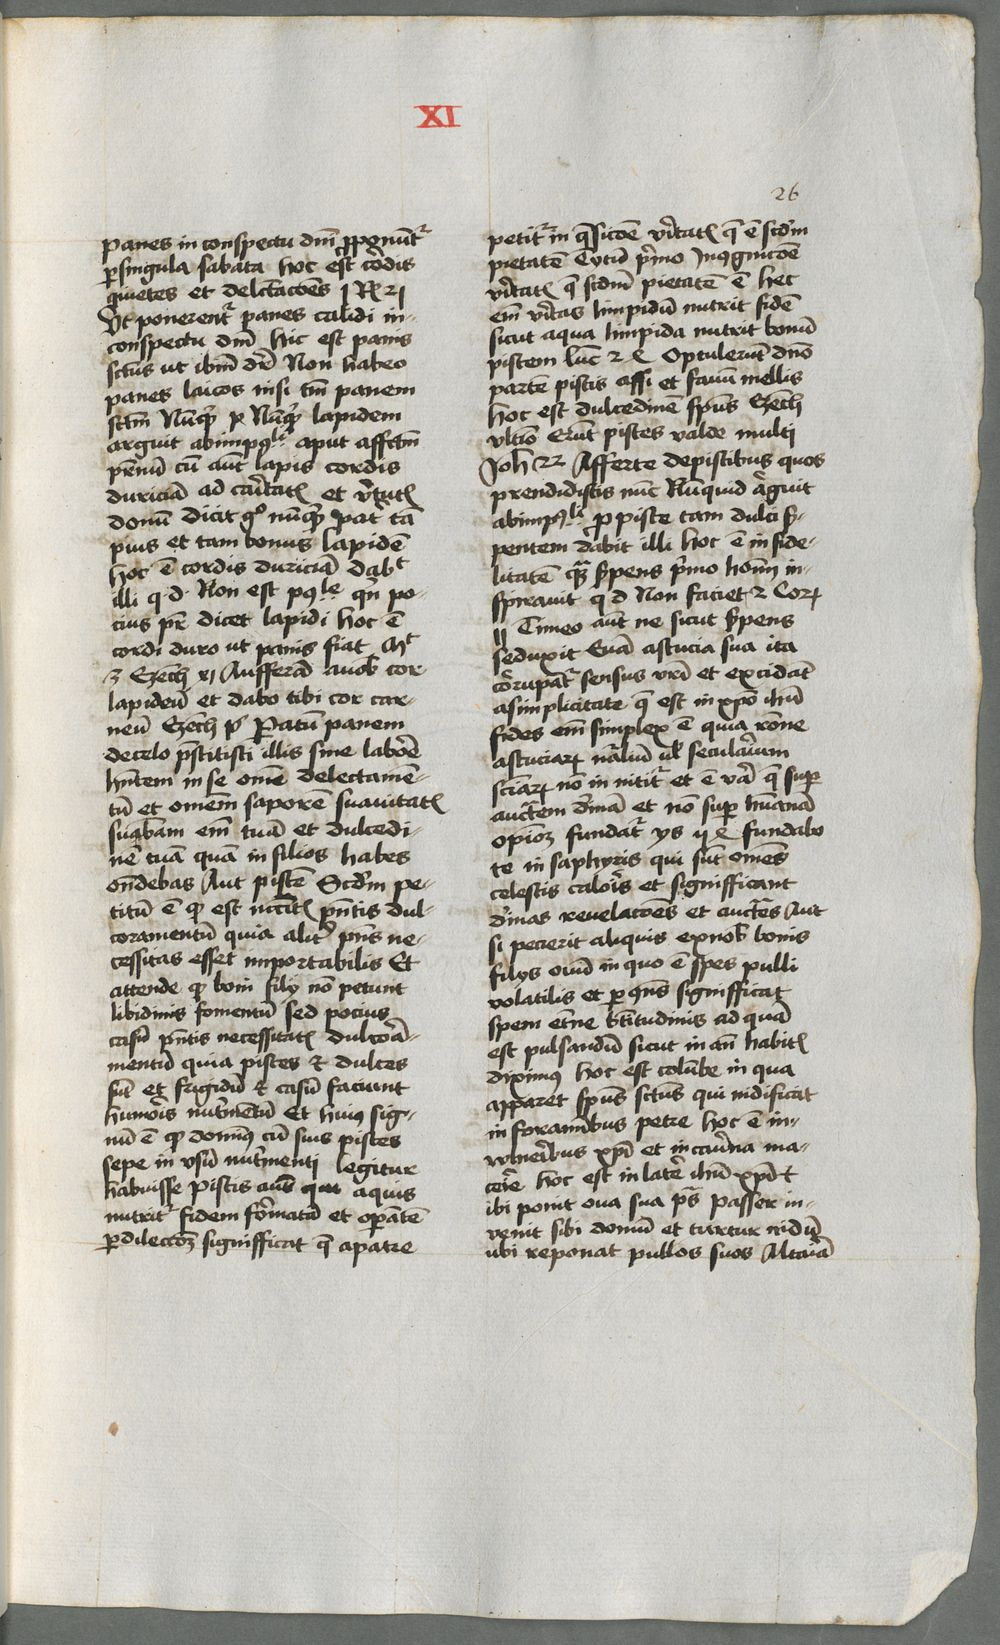 XI
26
panes in conspectu dnī ꝓponūt᷑
ꝑ singula sabata hoc est cordis
quietes et delectacōes 1 Rꝫ 21
Vt ponerent᷑ panes calidi in-
conspectu dnī hic est panis
sctūs ut ibm̄ dr̄ Non habeo
panes laicos nisi tm̄ panem
sctm̄ Nūqͥd lapidem
arguit ab impoˡⁱ aput affctm̄
prīmū cū aūt lapis cordis
duriciā ad caritatꝭ et virtutꝭ
donū dicit gͦ nūqͥd pat̄ tā
pius et tam bonus lapidē
hoc ē cordis duriciā dabᵗ
illi q d Non est poˡᵉ qn̄ po-
cius pr̄ dicet lapidi hoc ē
cordi duro ut panis fiat Mᵗ
3 Ezech xi Aufferā a uob̄ cor
lapideū et dabo tibi cor car-
neū Paratū panem
de celo prestitisti illis sine labore
hn̄tem in se omē delectamē-
tū et omēm saporē suauitatꝭ
subam em̄ tuā et dulcedi-
nē tuā quā in filios habes
ondebas Aut piscē Scdm̄ pe-
titū ē qd est necc̄itatꝭ pn̄tis dul-
coramentū quia alit᷑ pn̄s ne-
cessitas esset importabilis Et
attende qd boni filij nō petunt
libidinis fomentū sed pocius
casū pn̄tis necessitatꝭ dulcora-
mentū quia pisces et dulces
sūt et frigidū et casū faciunt
humoris nutrimentū Et huius sig-
nū ē qd domin9 cū suis pisces
sepe in vsū nutrimenti legitur
habuisse Piscis aūt qui aquis
nutrit᷑ fidem formatā et operātē
ꝑ dilectōꝫ signifficat q̄ a patre
petit᷑ in q̄sicōe veritatꝭ q̄ ē scdm̄
pietatē Cytū primo In ɔgnicōe
veritatꝭ q̄ scdm̄ pietatē ē hec
em̄ veritas limpidū nutrit fidē
sicut aqua limpida nutrit bonū
piscem Luc̄ 24 Optulerūt dn̄o
partē piscis assi et fauū mellis
hoc est dulcedinē spūs Ezech
vltīo Erūt pisces valde multi
Joh̄ 22 Afferte de piscibus quos
prendidistis nūc Nūquid arguit
ab impoˡⁱ ꝓ pisce tam dulci s̄-
pentem dabit illi hoc ē infide-
litatē serpens primo homī in-
spirauit q d Non faciet 2 Corꝭ
11 Timeo aūt ne sicut serpens
seduxit Euā astucia sua ita
corrūpāt᷑ sensus vrī et excidāt
a simplicitate q̄ est in xpō ihū
fides em̄ simplex ē quia rōne
astuciarꝫ nāliū ul̄ secularium
sciarꝫ nō innitit᷑ et ē vā q̄ suꝑ
auctem diuinā et nō suꝑ humanā
opīoꝫ fundat᷑ ys 54 fundabo
te in saphyris qui sūt omēs
celestis caloris et signifficant
diuinas reuelacōes et auctēs Aut
si pecierit aliquis ex nob̄ bonis
filijs ouū in quo ē spes pulli
volatilis et ꝑ ɔn̄s signifficat
spem etne btitudinis ad quā
est pulsandū sicut in an̄ habitꝭ
diximus hoc est colūbe in qua
apparet spūs sctūs qui nidificat
in foraminibus petre hoc ē in-
vulneribus xpī et in cauerna ma-
cerie hoc est in latere ihū xpī et
ibi ponit oua sua ps̄ Passer in-
venit sibi domū et turtur nidū
ubi reponat pullos suos Altaria